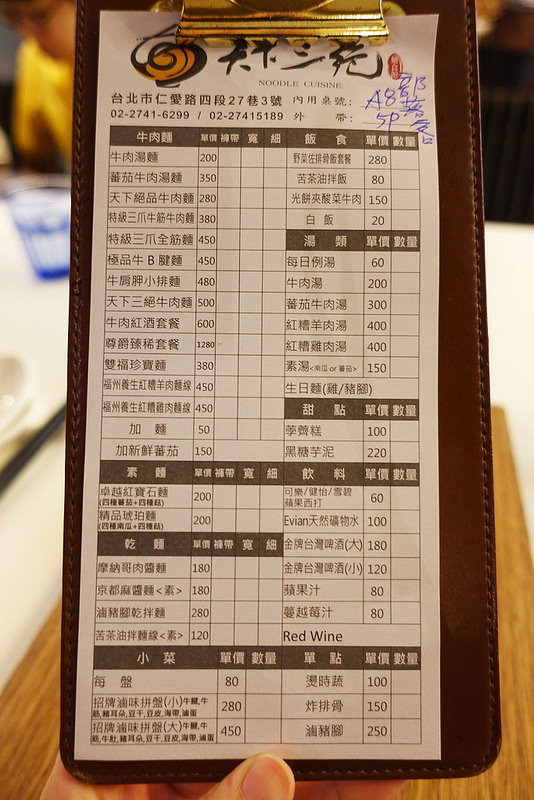 天下三絕
NOODLE CUISINE
台北市仁愛路四段27巷3號 內用桌號:
02-2741-6299 / 02-27415189 外 帶:
A8
5P
牛肉麵 單價 褲帶 寬 細
牛肉湯麵 200
蕃茄牛肉湯麵 350
天下絕品牛肉麵 280
特級三爪牛筋牛肉麵 380
特級三爪全筋麵 450
極品牛B腱麵 450
牛肩胛小排麵 480
天下三絕牛肉麵 500
牛肉紅酒套餐 600
尊爵臻稀套餐 1280
雙福珍寶麵 380
福州養生紅糟羊肉麵線 450
福州養生紅糟雞肉麵線 450
加 麵 50
加新鮮蕃茄 150
素 麵 單價 褲帶 寬 細
卓越紅寶石麵 200
(四種蕃茄+四種菇)
精品琥珀麵 200
(四種南瓜+四種菇)
乾 麵 單價 褲帶 寬 細
摩納哥肉醬麵 180
京都麻醬麵<素> 180
滷豬腳乾拌麵 280
苦茶油拌麵線<素> 120
小 菜 單價 數量
每 盤 80
招牌滷味拼盤(小)牛腱,牛 280
筋,豬耳朵,豆干,豆皮,海帶,滷蛋
招牌滷味拼盤(大)牛腱,牛 450
筋,牛肚,豬耳朵,豆干,豆皮,海帶,滷蛋
飯 食 單價 數量
野菜佐排骨飯套餐 280
苦茶油拌飯 80
光餅夾酸菜牛肉 150
白 飯 20
湯 類 單價 數量
每日例湯 60
牛肉湯 200
蕃茄牛肉湯 300
紅糟羊肉湯 400
紅糟雞肉湯 400
素湯<南瓜 or 蕃茄> 150
生日麵(雞/豬腳)
甜 點 單價 數量
荸薺糕 100
黑糖芋泥 220
飲 料 單價 數量
可樂/健怡/雪碧 60
蘋果西打
Evian天然礦物水 100
金牌台灣啤酒(大) 180
金牌台灣啤酒(小) 120
蘋果汁 80
蔓越莓汁 80
Red Wine
單 點 單價 數量
燙時蔬 100
炸排骨 150
滷豬腳 250